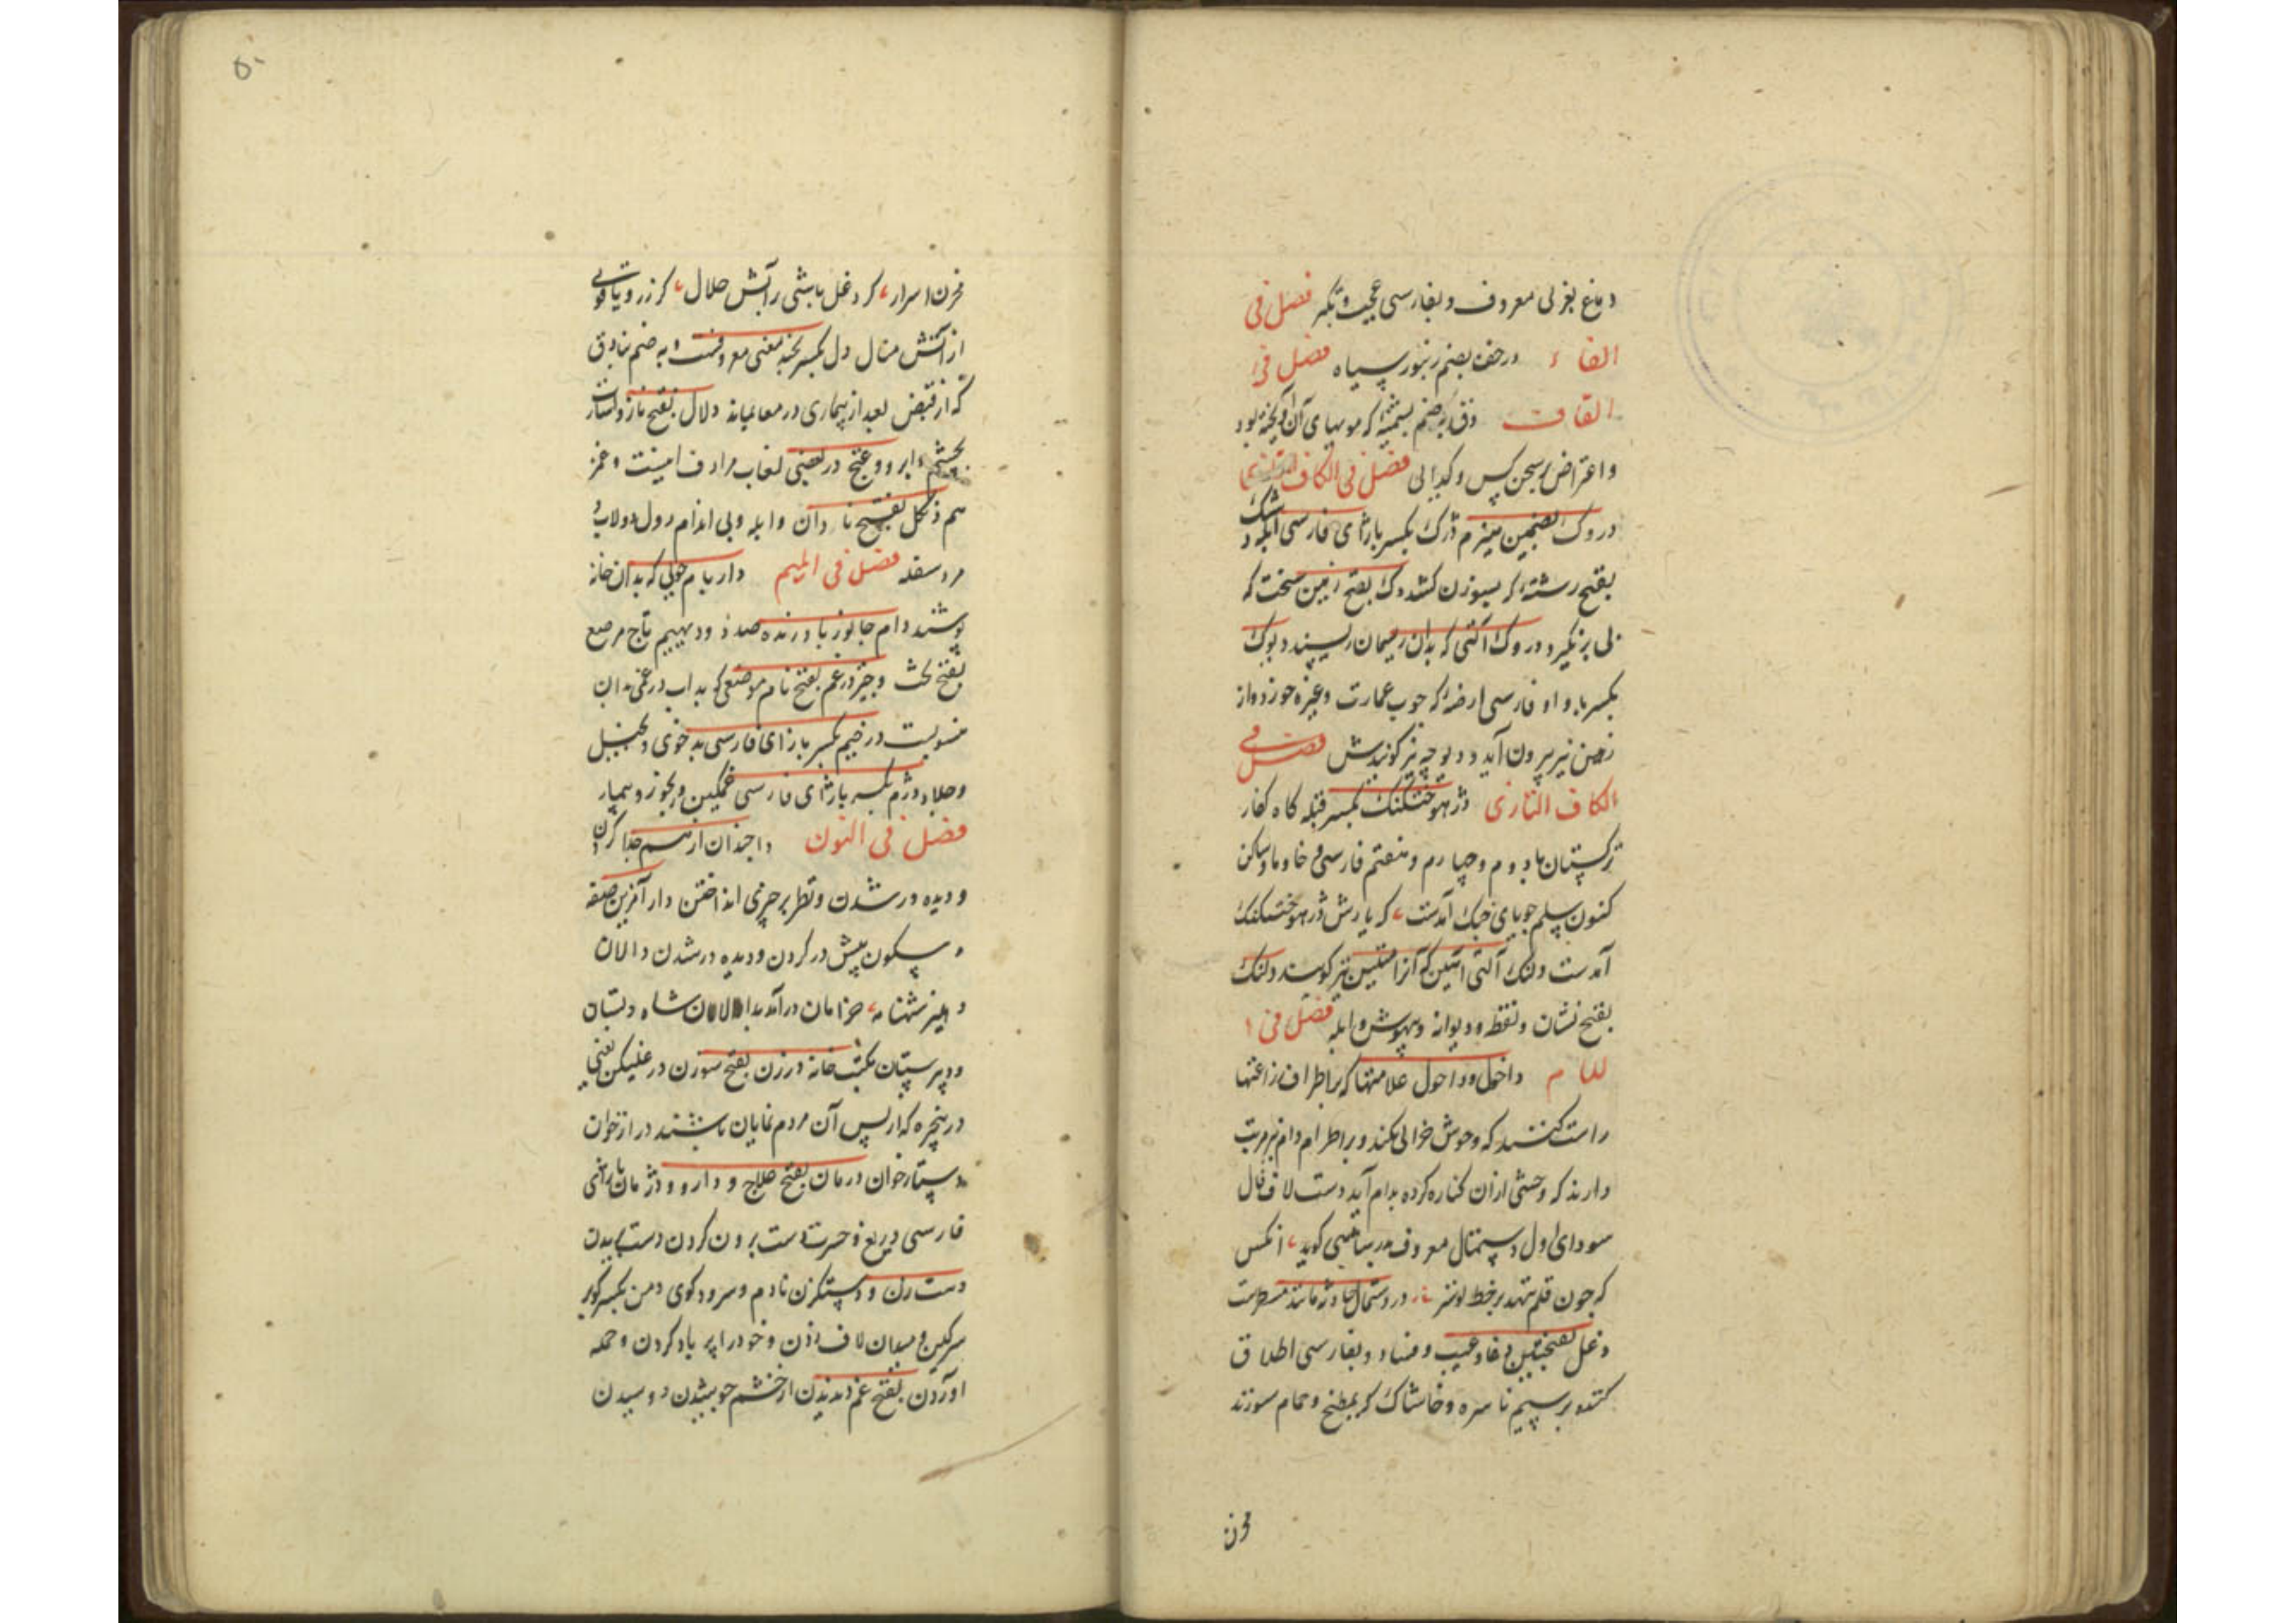 دماغ بغزلی معروف و بفارسی عجب و تکبر فصل فی
الفاء درخف بضم زنبور سیاه فصل فی
القاف دق به ضم پشمینه که مویهای آن آویخته بود
و اعتراض بر سخن کس و گدایی فصل فی الکاف
دروک بضمتین هیزم دژک بکسر با زای فارسی
بفتح رشته که بسوزن کشند دک بفتح زمین سخت که
بلی برنگیرد و دروک آلتی که بدان ریسمان ریسند دیوک
بکسر با واو فارسی ارضه که چوب عمارت و غیره خورد و از
زمین نیز بیرون آید و دیوچه نیز گویندش فصل فی
الکاف التازی دژهوختکنک بکسر قبله گاه کفار
ترکستان با دوم و چهارم و هفتم فارسی و خا و ما و ساکن
کنون سلم جویای جنک آمدست که یارش دژهوختکنک
آمدست دلنک آلتی آهنین که آنرا متین نیز گویند دنک
بفتح نشان و نقطه و دیوانه و بیهوش و ابله فصل فی ا
للام داخل و داحول علامتها که بر اطراف زراعتها
راست کنند که وحوش خرابی نکند و بر اطراف دام نیز مرتب
دارند که وحشی ازان کناره کرده بدام آید دست لاف فال
سودای اول دستمال معروف بدرساهیی گوید آنکس
که چون قلم نهد بر خط تو سر در دستمال حادثه مانند مسطرست
دغل بفتحتین دغا و عیب و فساد و بفارسی اطلاق
کنند بر سیم ناسره و خاشاک که بمطبخ و حمام سوزند
مخزن
۵۰
مخزن اسرار کر دغل باشی بر آتش حلال کر زر و یاقوتی
از آتش منال دل بکسر بخته معنی معروفست و به ضم
که از قبض بعد از بیماری در معا بماند دلال بفتح ناز و اشارت
بچشم و ابرو و غنج در بعضی لغات مرادف اینست و غمز
هم دنکل بفتح نادان و ابله و بی اندام رول دولاب و
مرد سفله فصل فی المیم دار بام چوبی که بدان خانه
پوشند دام جانور نا درنده صد دد و دیهیم تاج مرصع
بفتح تخت و چتر درغم بفتح نام موضعی که بد آب درغمی بدان
منسوبست دژخیم بکسر با زای فارسی بدخوی و بخیل
و جلاد دژم بکسر با زای فارسی غمگین و رنجور و بیمار
فصل فی النون داجیدان از هم جدا کردن
و دیده ور شدن و نظر بر چیزی انداختن دار آفرین صفه
و سکون پیش در کردن و دیده ور شدن دالان
دهلیز شهنامه خرامان درآمد بدالان شاه دبستان
و دبیرستان مکتب خانه درزن بفتح سوزن درغلیکن یعنی
در پنجره که از پس آن مردم نمایان باشند درازخوان
دستارخوان درمان بفتح علاج و دارو و دژمان با زای
فارسی دریغ و حسرت دست برون کردن دست بریدن
دست زن و دستکزن نادم و سرودگوی دمن بکسر کود
سرگین و میدان لاف زدن و خود را پر باد کردن و حمله
آوردن بفتح غم دندیدن از خشم جوشیدن دوسیدن